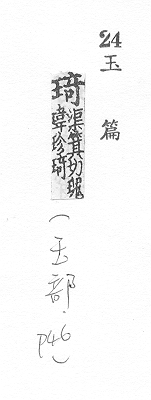 24
玉篇
琦渠箕切瑰
韋珍琦
(玉部.
P46)